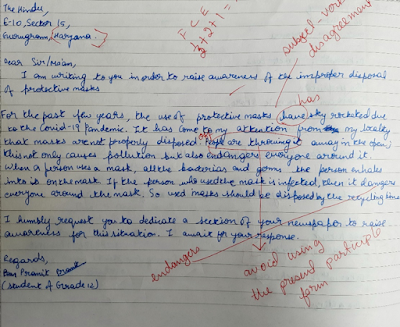 The Hindu,
E-10, Sector 15,
Gurugram, Haryana.
F C E
½+2+1=
subject-verb disagreement
Dear Sir/Ma'am,
I am writing to you in order to raise awareness of the improper disposal
of protective masks
has
For the past few years, the use of protective masks have sky rocketed due
to the Covid-19 Pandemic. It has come to my attention from my locality
that masks are not properly disposed off. People are throwing it away in the open
this not only causes pollution but also endangers everyone around it.
When a person uses a mask, all the bacterias and germs the person inhales
into is on the mask. If the person who used the mask is infected, then it dangers
everyone around the mask. So used masks should be disposed by the recycling bins
I humbly request you to dedicate a section of your newspaper to raise
awareness for this situation. I await for your response.
Regards,
Pramit
(Student of Grade 12)
endangers
avoid using
the present participle
form